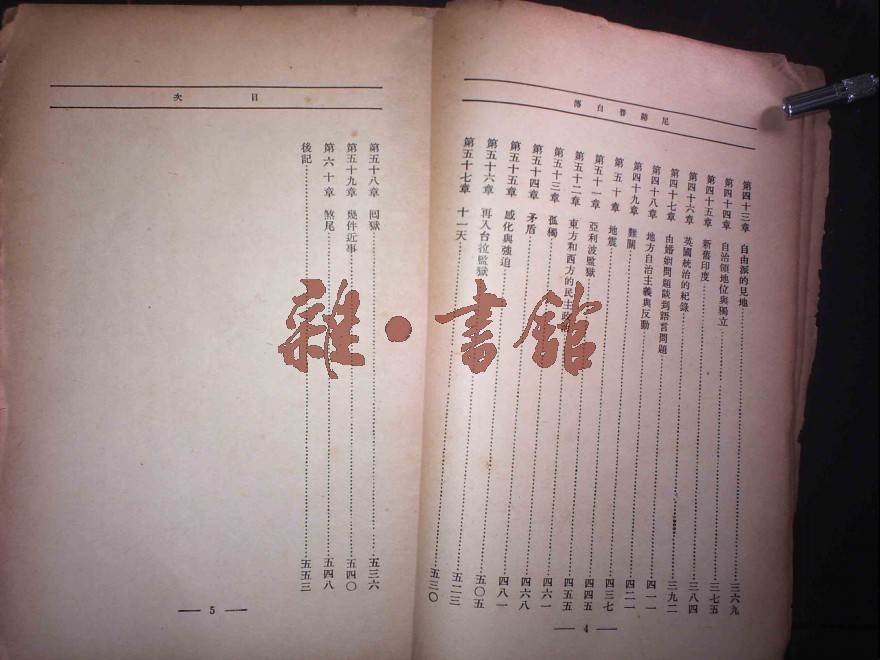 尼赫魯自傳
第四十三章 自由派的見地……三六九
第四十四章 自治領地位與獨立……三七五
第四十五章 新舊印度……三八四
第四十六章 英國統治的紀錄……三九二
第四十七章 由婚姻問題談到語言問題……四一一
第四十八章 地方自治主義與反動……四二一
第四十九章 難關……四三七
第五十章 地震……四四五
第五十一章 亞利波監獄……四五五
第五十二章 東方和西方的民主政……四六一
第五十三章 孤獨……四六八
第五十四章 矛盾……四八一
第五十五章 感化與強迫……五〇五
第五十六章 再入台拉監獄……五二三
第五十七章 十一天……五三〇
— 4 —
目次
第五十八章 回獄……五三六
第五十九章 幾件近事……五四〇
第六十章 煞尾……五四八
後記……五五三
— 5 —
雜·書館